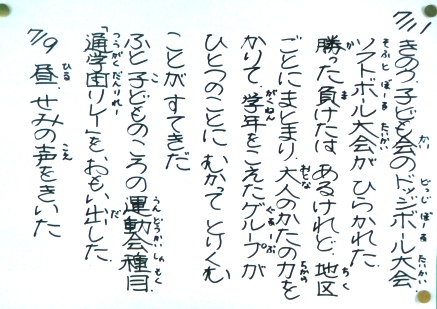 7/11
きのう、子ども会のドッジボール大会、
ソフトボール大会がひらかれた。
勝った負けたは あるけれど、地区
ごとにまとまり、大人のかたの力を
かりて、学年をこえたグループが
ひとつのことに むかって とりくむ
ことが すてきだ
ふと 子どものころの 運動会種目、
「通学団リレー」を、おもい出した。
7/9 昼、せみの声をきいた